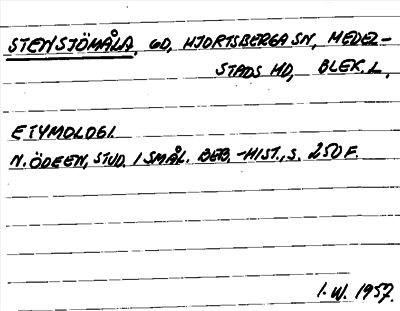 STENSJÖMÅLA, GD, HJORTSBERGA SN, MEDEL-
STADS HD, BLEK. L.
ETYMOLOGI.
N. ÖDEEN, STUD. I SMÅL. BEB.-HIST., S. 250 F.
I. W. 1957.